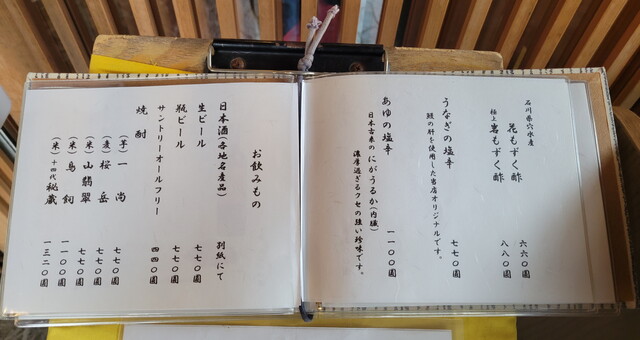 石川県穴水産
花もずく酢 六六〇圓
極上 岩もずく酢 八八〇圓
うなぎの塩辛 七七〇圓
鰻の肝を使用した当店オリジナルです。
あゆの塩辛 一一〇〇圓
日本古来の にがうるか(内臓)
濃厚過ぎるクセの強い珍味です。
お飲みもの
日本酒(各地名産品) 別紙にて
生ビール 七七〇圓
瓶ビール 七七〇圓
サントリーオールフリー 四四〇圓
焼酎
(芋) 一尚 七七〇圓
(麦) 桜岳 七七〇圓
(米) 山翡翠 七七〇圓
(米) 鳥飼 一一〇〇圓
(米) 十四代 秘蔵 一三二〇圓